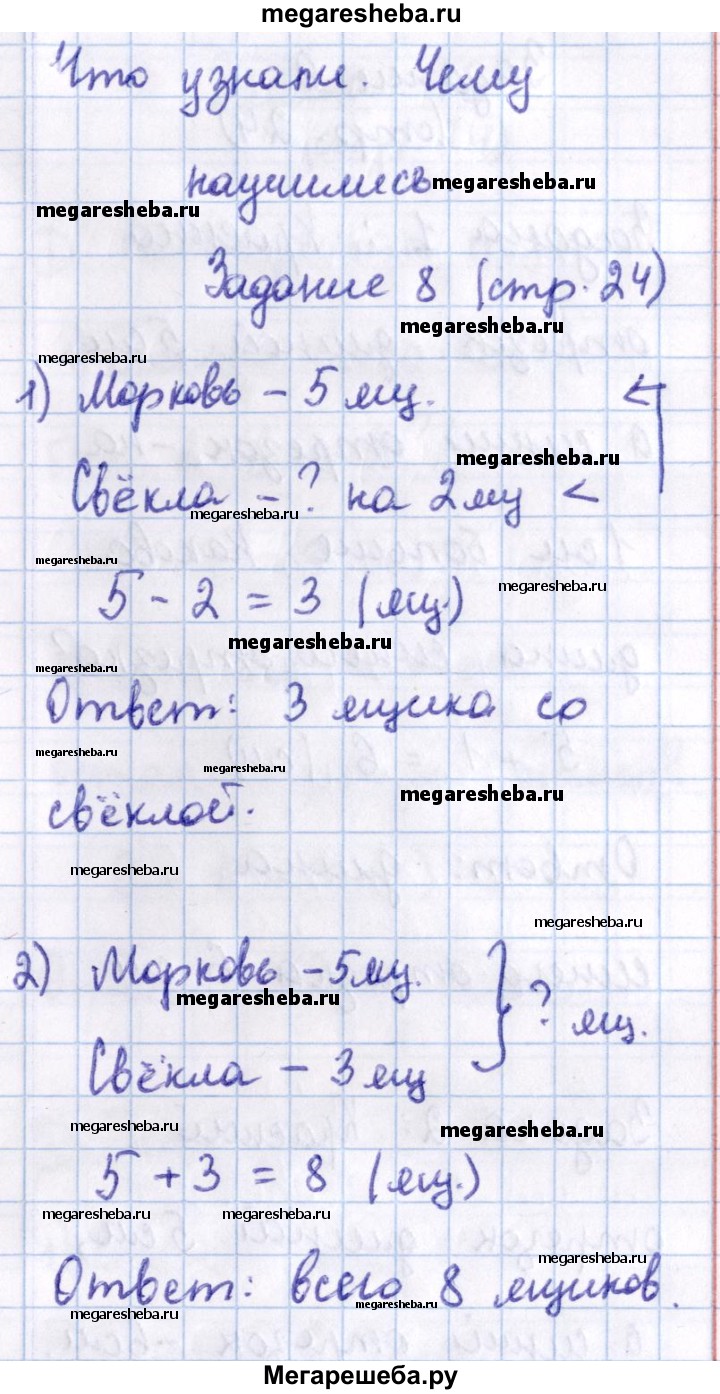 megaresheba.ru
Что узнали. Чему
научились. megaresheba.ru
megaresheba.ru
Задание 8 (стр. 24)
megaresheba.ru
megaresheba.ru
1) Морковь - 5 ящ. <
megaresheba.ru
Свёкла - ? на 2 ящ <
megaresheba.ru
megaresheba.ru
megaresheba.ru
5 - 2 = 3 (ящ.)
megaresheba.ru
megaresheba.ru
Ответ: 3 ящика со
megaresheba.ru
megaresheba.ru
megaresheba.ru
свёклой.
megaresheba.ru
megaresheba.ru
2) Морковь - 5 ящ. } ? ящ.
megaresheba.ru
Свёкла - 3 ящ
megaresheba.ru
megaresheba.ru
5 + 3 = 8 (ящ.)
megaresheba.ru megaresheba.ru
megaresheba.ru
Ответ: всего 8 ящиков.
megaresheba.ru
megaresheba.ru
Мегарешеба.ру